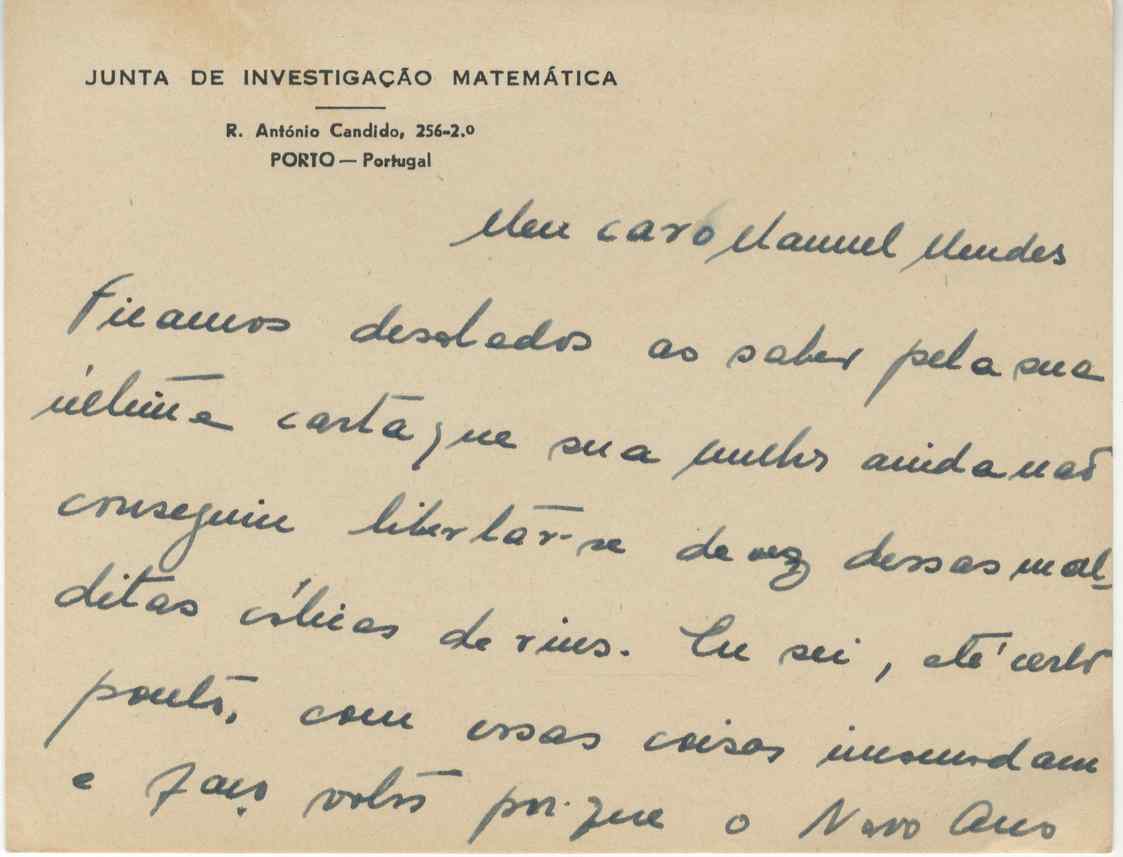 JUNTA DE INVESTIGAÇÃO MATEMÁTICA
R. António Candido, 256-2.º
PORTO — Portugal
Meu caro Manuel Mendes
Ficamos desolados ao saber pela sua
última carta que sua mulher ainda não
conseguiu libertar-se de vez dessas mal-
ditas cólicas de rins. Eu sei, até certo
ponto, como essas coisas incomodam
e faço votos por que o Novo Ano